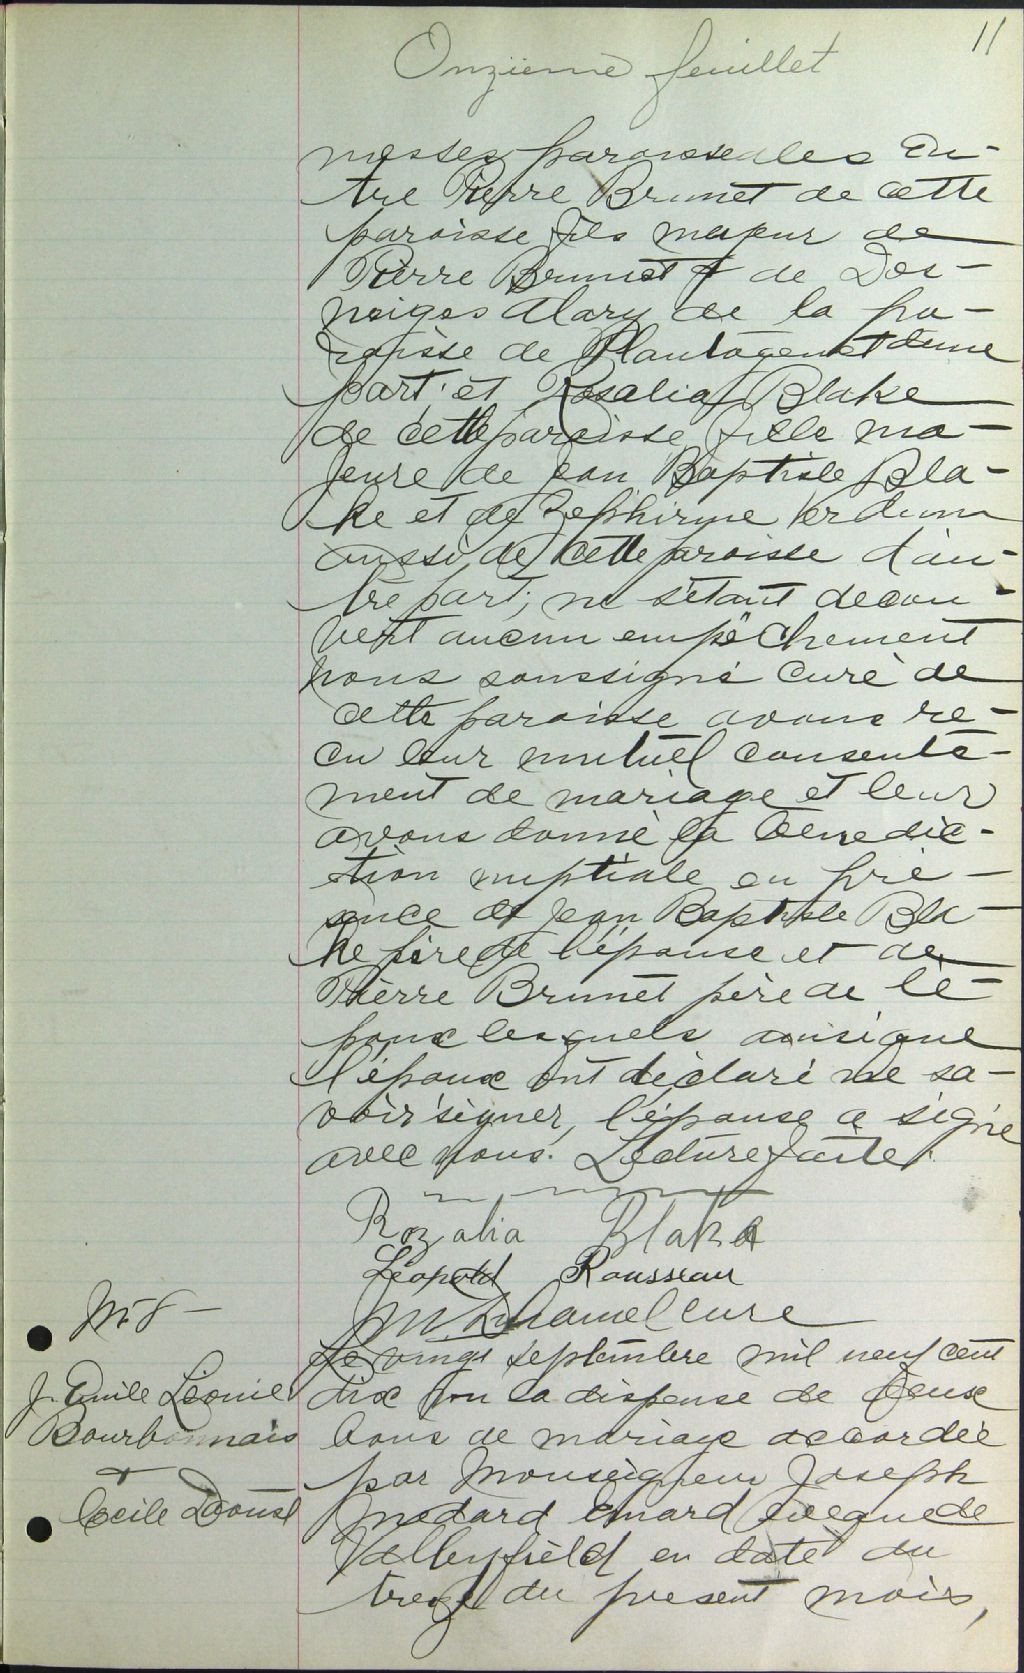 11
Onzième feuillet
messes paroissiales en-
tre Pierre Brunet de cette
paroisse fils majeur de
Pierre Brunet & de Des-
neiges Alary de la pa-
roisse de Plantagenet d'une
part et Rosalia Blake
de cette paroisse, fille ma-
jeure de Jean Baptiste Bla-
ke et de Zéphirine
aussi de cette paroisse d'au-
tre part; ne s'étant décou-
vert aucun empêchement
nous soussigné curé de
cette paroisse avons re-
cu leur mutuel consente-
ment de mariage et leur
avons donné la bénédic-
tion nuptiale en pré-
sence de Jean Baptiste Bla-
ke père de l'épouse et de
Pierre Brunet père de l'é-
poux lesquels ainsi que
l'époux ont déclaré ne sa-
voir signer, l'épouse a signé
avec nous. Lecture faite.
Rozalia Blake
Léopold Rousseau
curé
M-8-
J. Emile Léonie
Bourbonnais
&
Cécile Daoust
Le vingt septembre mil neuf cent
dix vu la dispense de deux
bans de mariage accordée
par Monseigneur Joseph
Médard Emard évêque de
Valleyfield en date du
treize du présent mois,